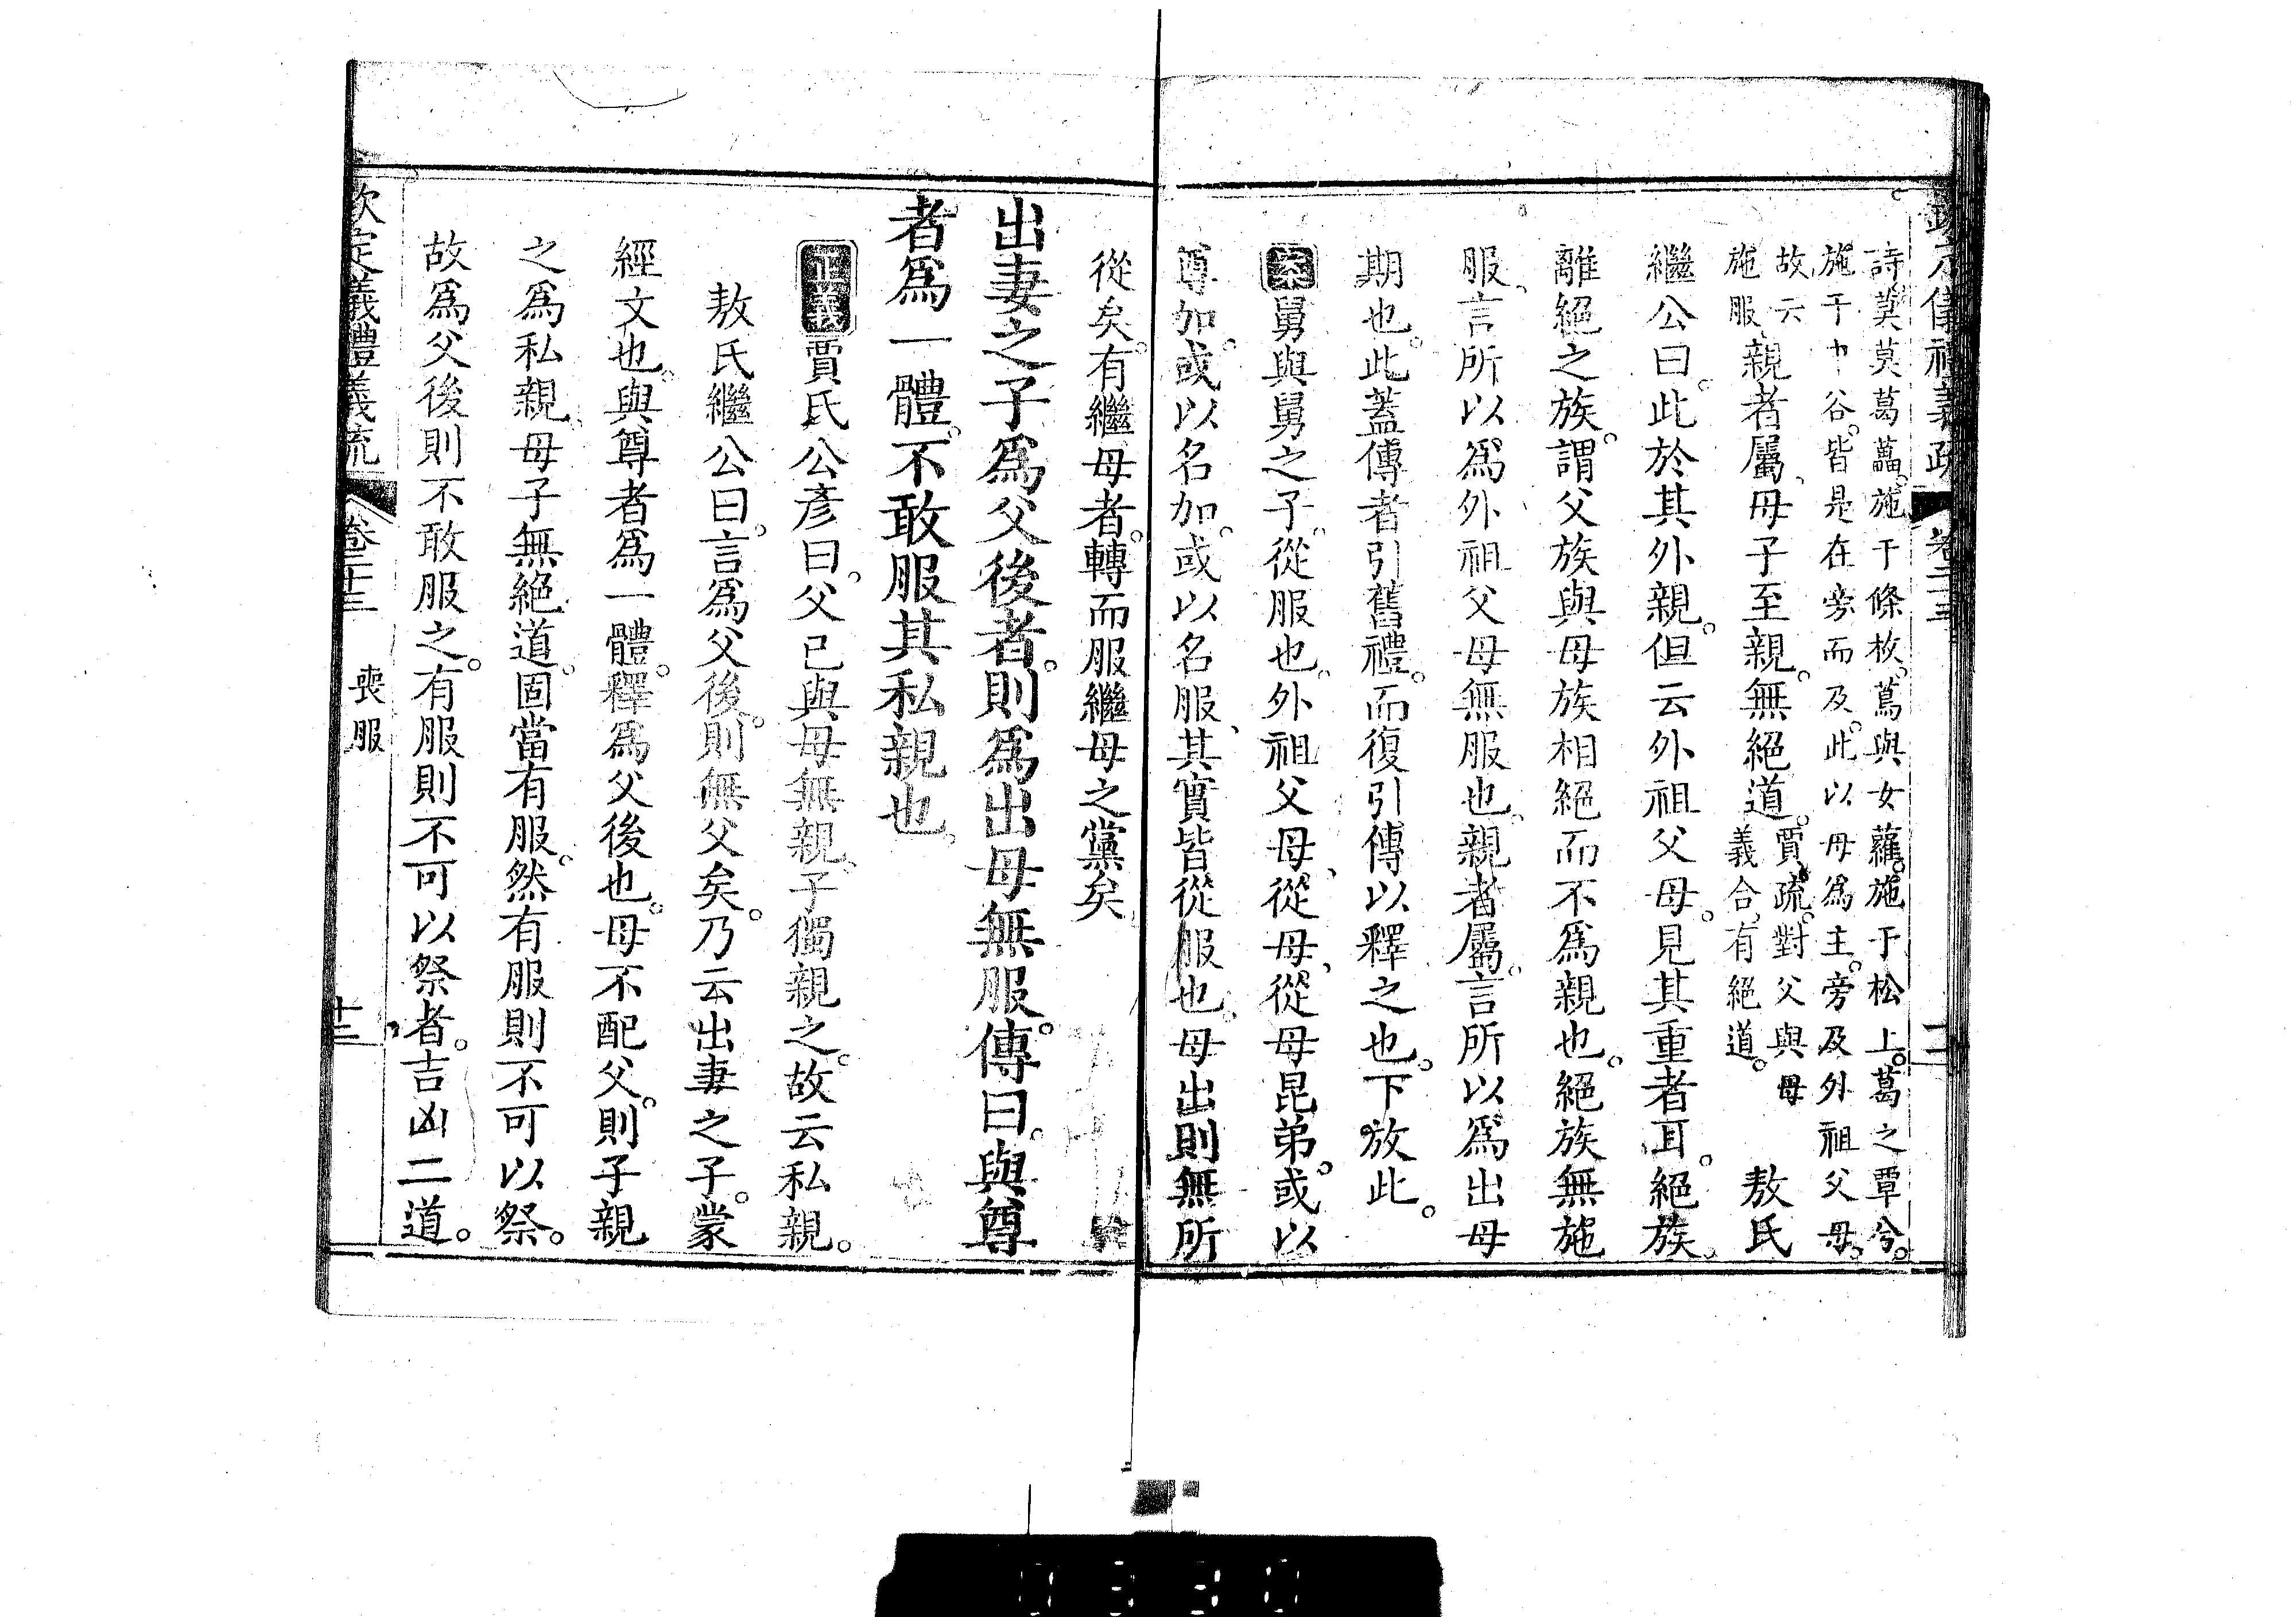 欽定儀禮義疏 卷二十三 十二
詩莫莫葛藟。施于條枚。蔦與女蘿。施于松上。葛之覃兮。
施于中谷。皆是在旁而及。此以母為主。旁及外祖父母。
故云
施服、親者屬、母子至親。無絕道。賈疏。對父與母
義合、有絕道。
敖氏
繼公曰。此於其外親。但云外祖父母。見其重者耳。絕族。
離絕之族。謂父族與母族相絕而不為親也。絕族無施
服、言所以為外祖父母無服也。親者屬。言所以為出母
期也。此蓋傳者引舊禮。而復引傳以釋之也。下放此。
案舅與舅之子。從服也。外祖父母、從母、從母昆弟。或以
尊加。或以名加。或以名服、其實皆從服也。母出則無所
從矣。有繼母者。轉而服繼母之黨矣
出妻之子為父後者。則為出母無服。傳曰。與尊
者為一體。不敢服其私親也。
正義賈氏公彥曰。父已與母無親、子獨親之。故云私親。
敖氏繼公曰。言為父後。則無父矣。乃云出妻之子。蒙
經文也。與尊者為一體。釋為父後也。母不配父。則子親
之為私親。母子無絕道。固當有服。然有服則不可以祭。
故為父後則不敢服之。有服則不可以祭者。吉凶二道。
欽定儀禮義疏 卷二十三 喪服 十三
0330